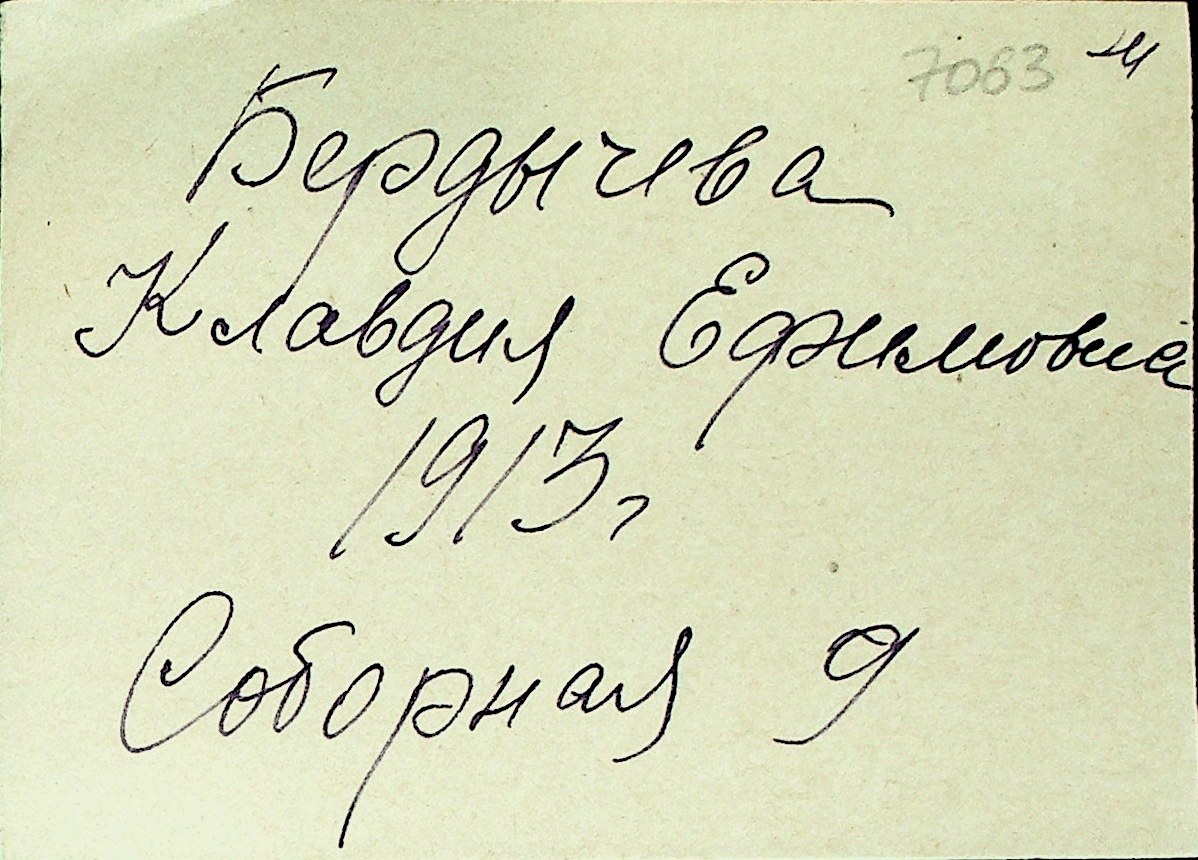 7063
Бердычева
Клавдия Ефимовна
1913г
Соборная 9